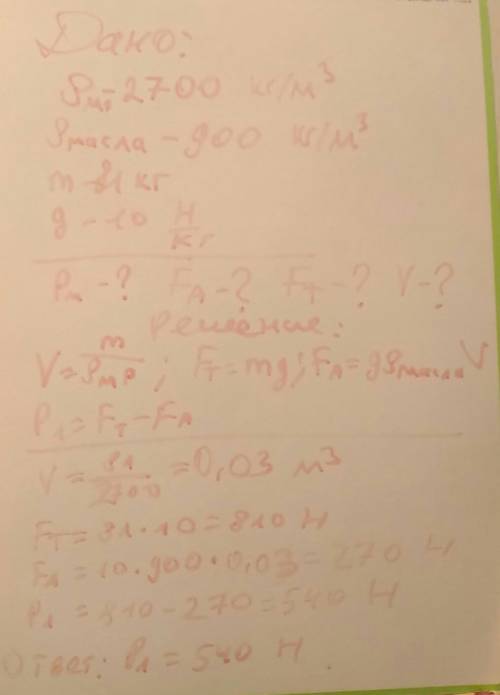 Дано:
ρмр-2700 кг/м³
ρмасла - 900 кг/м³
m-81 кг
g - 10 Н/кг
P₁ -? FA -? FT -? V-?
Решение:
V = m/ρмр ; FT = mg ; FA = gρмаслаV
P₁ = FT - FA
V = 81/2700 = 0,03 м³
FT = 81·10 = 810 Н
FA = 10·900·0,03 = 270 Н
P₁ = 810 - 270 = 540 Н
Ответ: P₁ = 540 Н.